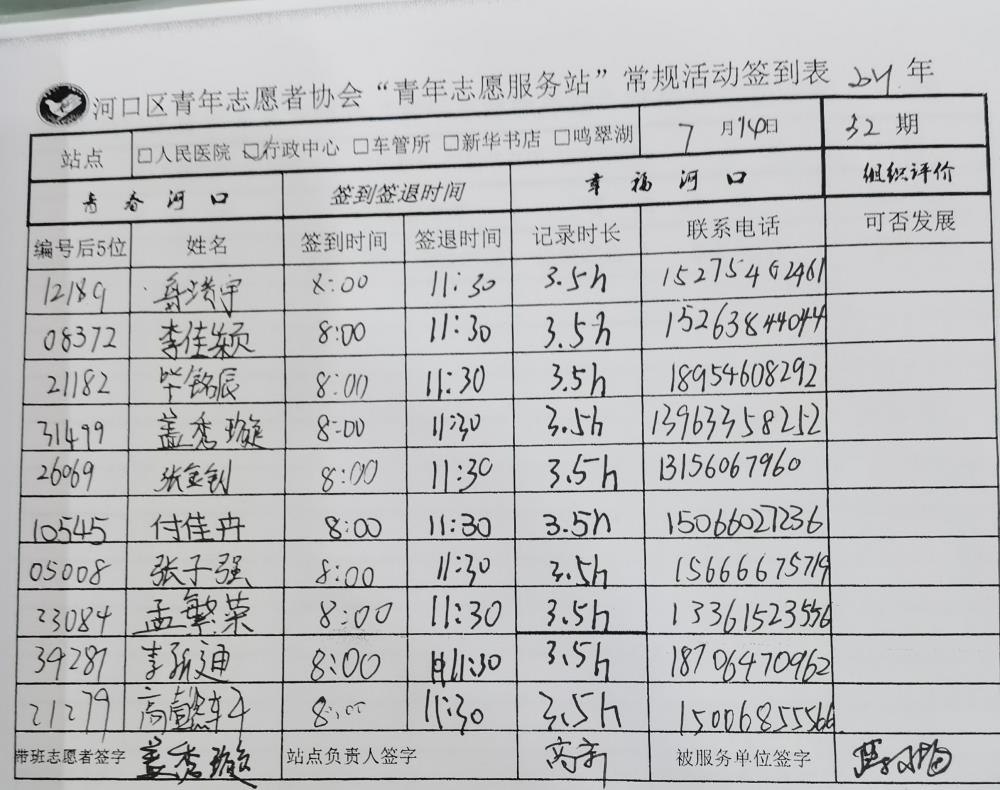 河口区青年志愿者协会“青年志愿服务站”常规活动签到表 年
站点 □人民医院 ☑行政中心 □车管所 □新华书店 □鸣翠湖 7月14日 32期
青春河口 签到签退时间 幸福河口 组织评价
编号后5位 姓名 签到时间 签退时间 记录时长 联系电话 可否发展
12189 8:00 11:30 3.5h 15275462461
08372 李佳颖 8:00 11:30 3.5h 15263844044
21182 毕铭辰 8:00 11:30 3.5h 18954608292
31499 盖秀璇 8:00 11:30 3.5h 13963358252
26069 张金钊 8:00 11:30 3.5h 13156067960
10545 付佳卉 8:00 11:30 3.5h 15066027236
05008 张子强 8:00 11:30 3.5h 15666675719
23084 孟繁荣 8:00 11:30 3.5h 13361523556
34287 8:00 11:30 3.5h 18706470962
21279 8:00 11:30 3.5h 15006855566
带班志愿者签字 盖秀璇 站点负责人签字 高新 被服务单位签字